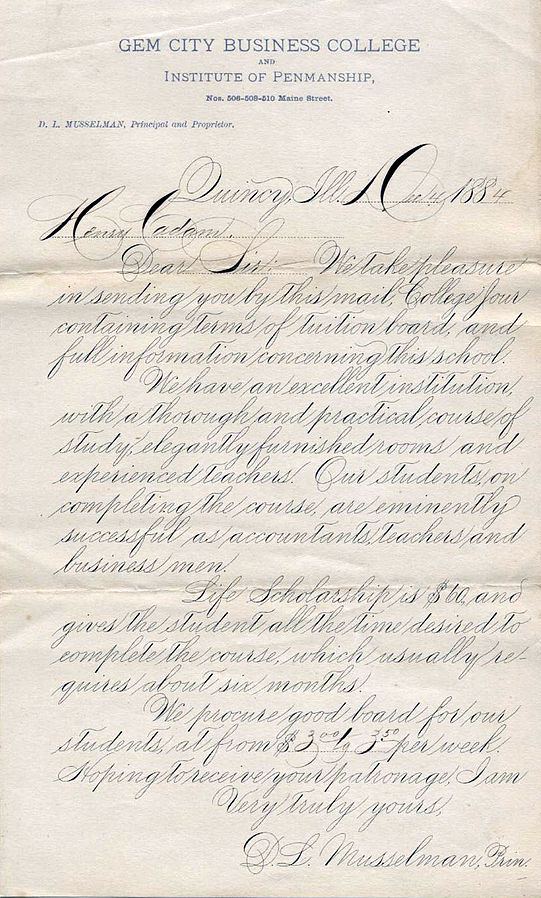 GEM CITY BUSINESS COLLEGE
AND
INSTITUTE OF PENMANSHIP,
Nos. 506-508-510 Maine Street.
D. L. MUSSELMAN, Principal and Proprietor.
Quincy, Ill. 1884
Henry Cadam.
Dear Sir:— We take pleasure
in sending you by this mail, College Jour
containing terms of tuition board, and
full information concerning this school.
We have an excellent institution,
with a thorough and practical course of
study, elegantly furnished rooms and
experienced teachers. Our students, on
completing the course, are eminently
successful as accountants, teachers and
business men.
Life Scholarship is $60, and
gives the student all the time desired to
complete the course, which usually re-
quires about six months.
We procure good board for our
students, at from $3.00 to 3.50 per week.
Hoping to receive your patronage, I am
Very truly yours,
D. L. Musselman, Prin.